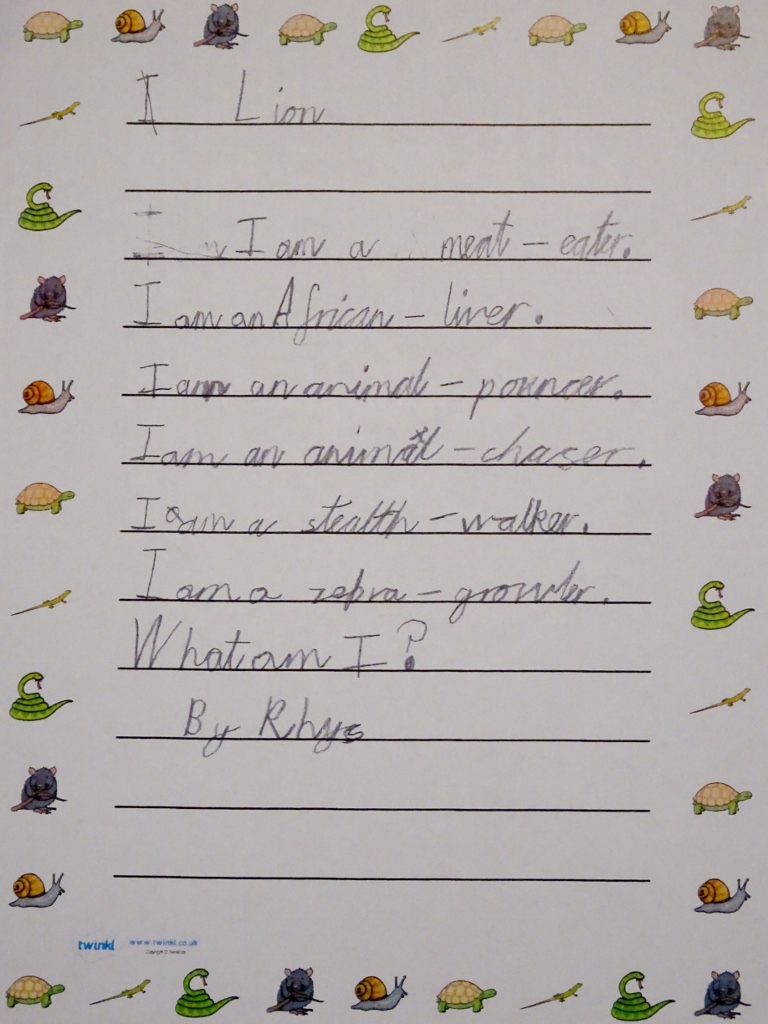 I Lion
I am a meat - eater.
I am an African - liver.
I am an animal - pouncer.
I am an animal - chaser.
I am a stealth - walker.
I am a zebra - growler.
What am I?
By Rhys
twinkl www.twinkl.co.uk